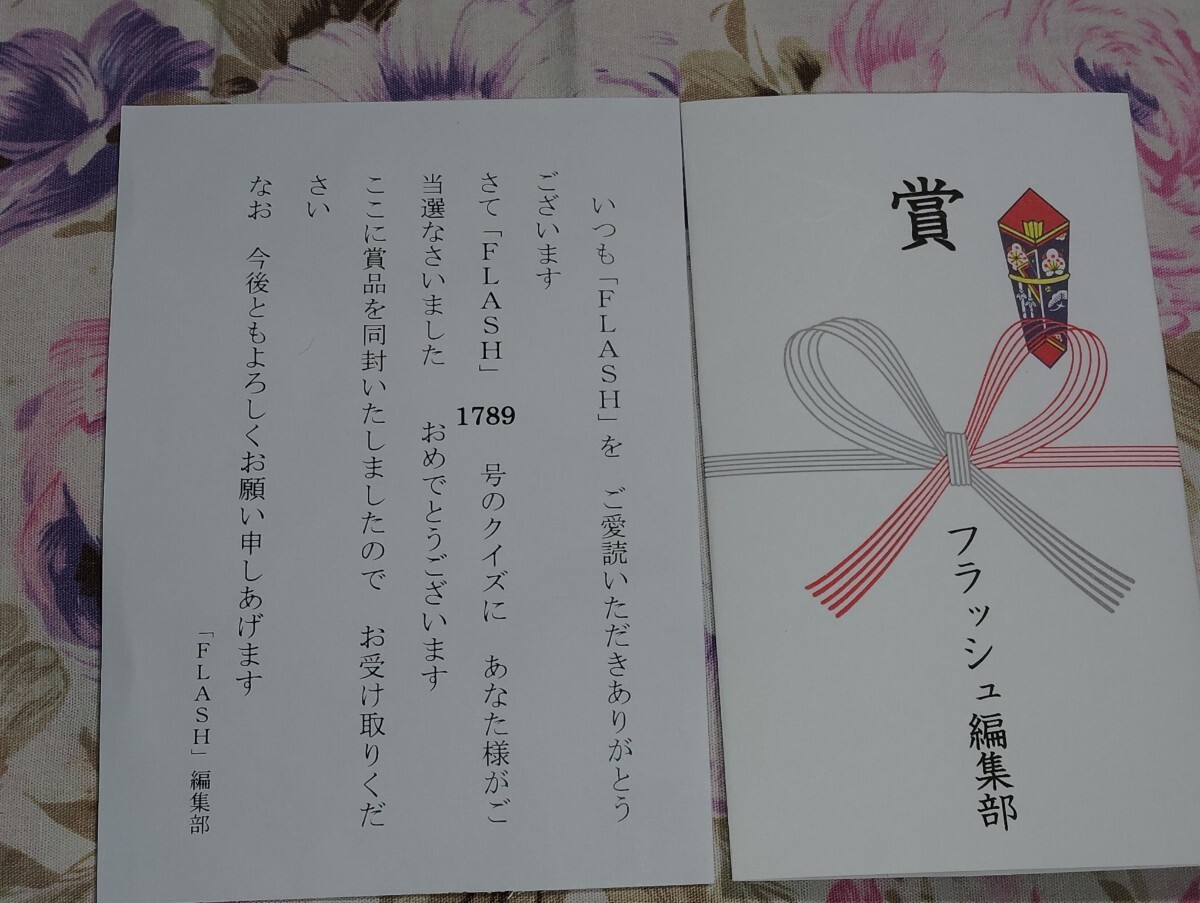 賞
フラッシュ編集部
いつも「FLASH」を　ご愛読いただきありがとう
ございます
さて「FLASH」　1789　号のクイズに　あなた様がご
当選なさいました　おめでとうございます
ここに賞品を同封いたしましたので　お受け取りくだ
さい
なお　今後ともよろしくお願い申しあげます
「FLASH」編集部